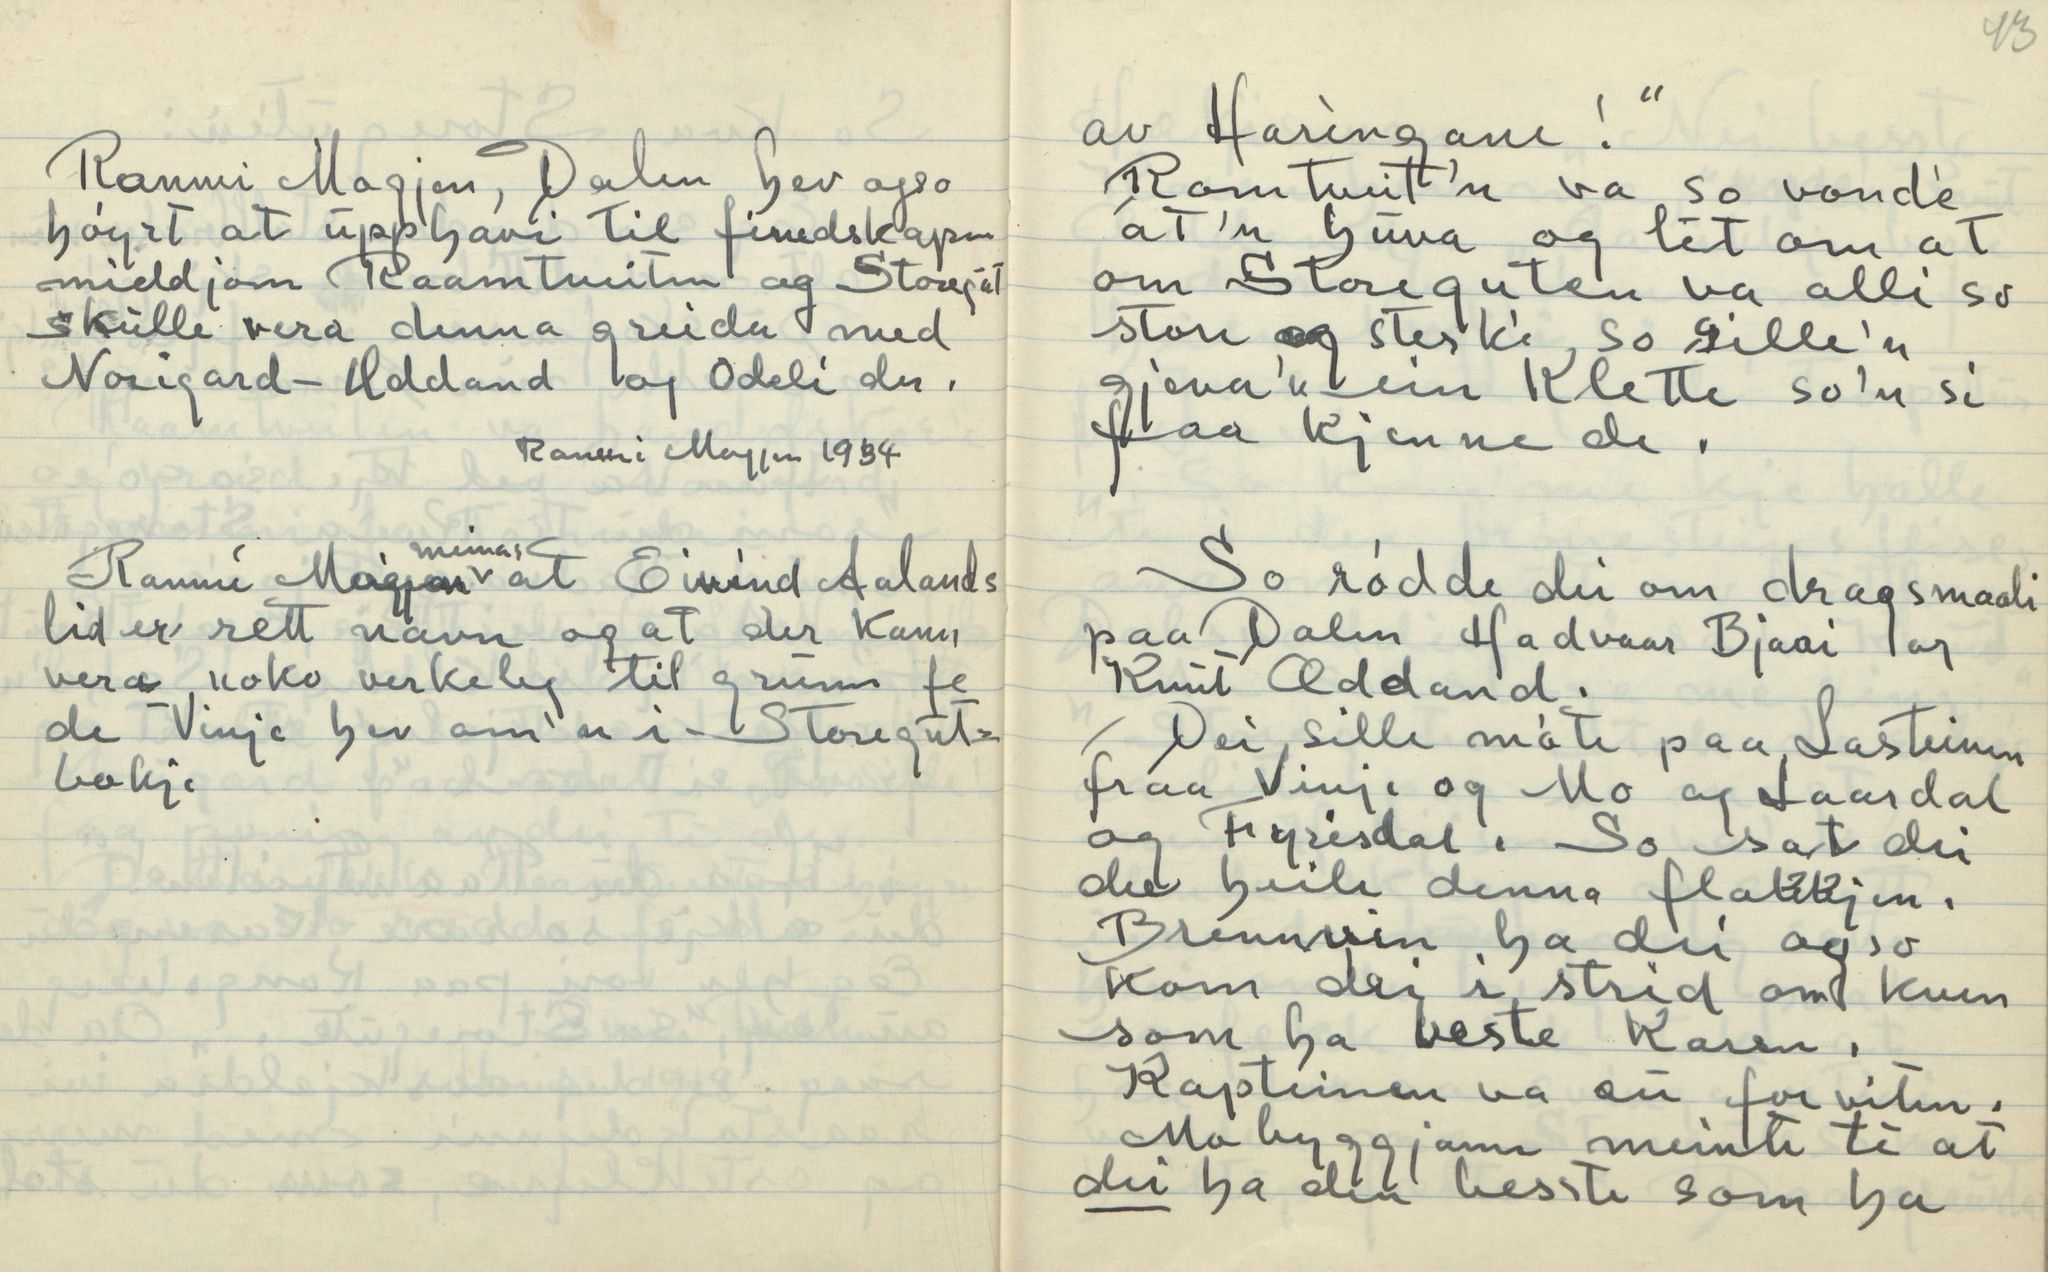 Rannei Mogjen, Dalen hev ogso
høyrt at upphavi til fiendskapen
middjom Raamtveiten og Storegut
skulle vera denna greida med
Norigard-Oddand og Odeli der.
Rannei Mogjen 1934
Rannei Mogjen meinar at Eivind Aalands
lid er rett navn og at der kann
vera noko verkeleg til grunn fe
de Vinje hev om'n i Storegut-
bokje
43
av Haringane!"
Romtveit'n va so vonde
át'n huva og lét om at
om Storeguten va alli so
stor og sterkė so sille'n
gjeva'n ein Klette so'n si
faa kjenne de.
So rødde dei om dragsmaali
paa Dalen Hadvaar Bjaai og
Knut Oddand.
Dei sille møte paa Lasteinen
fraa Vinje og Mo og Laardal
og Fyrisdal. So sat dei
der heile denna flakkjen.
Brennvin ha dei og so
kom dei i strid om kven
som ha beste Karen.
Kapteinen va au forviten.
Mobyggjane meinte te at
dei ha den besste som ha